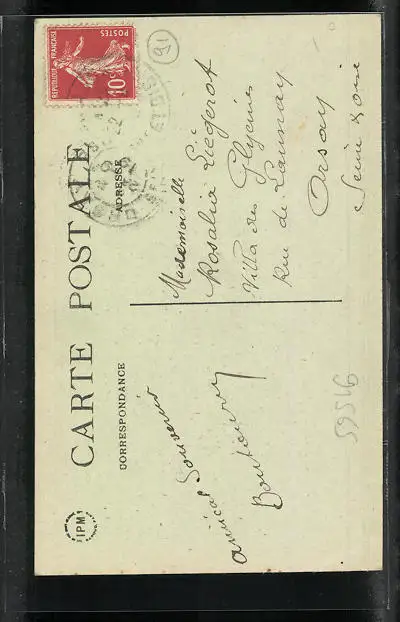 CARTE POSTALE
CORRESPONDANCE
ADRESSE
REPUBLIQUE FRANÇAISE
POSTES
10c
91
Amical Souvenir
Mademoiselle
Rosalia Liégerot
Villa des Glycines
Rue de Launay
Orsay
Seine & Oise
59516
IPM